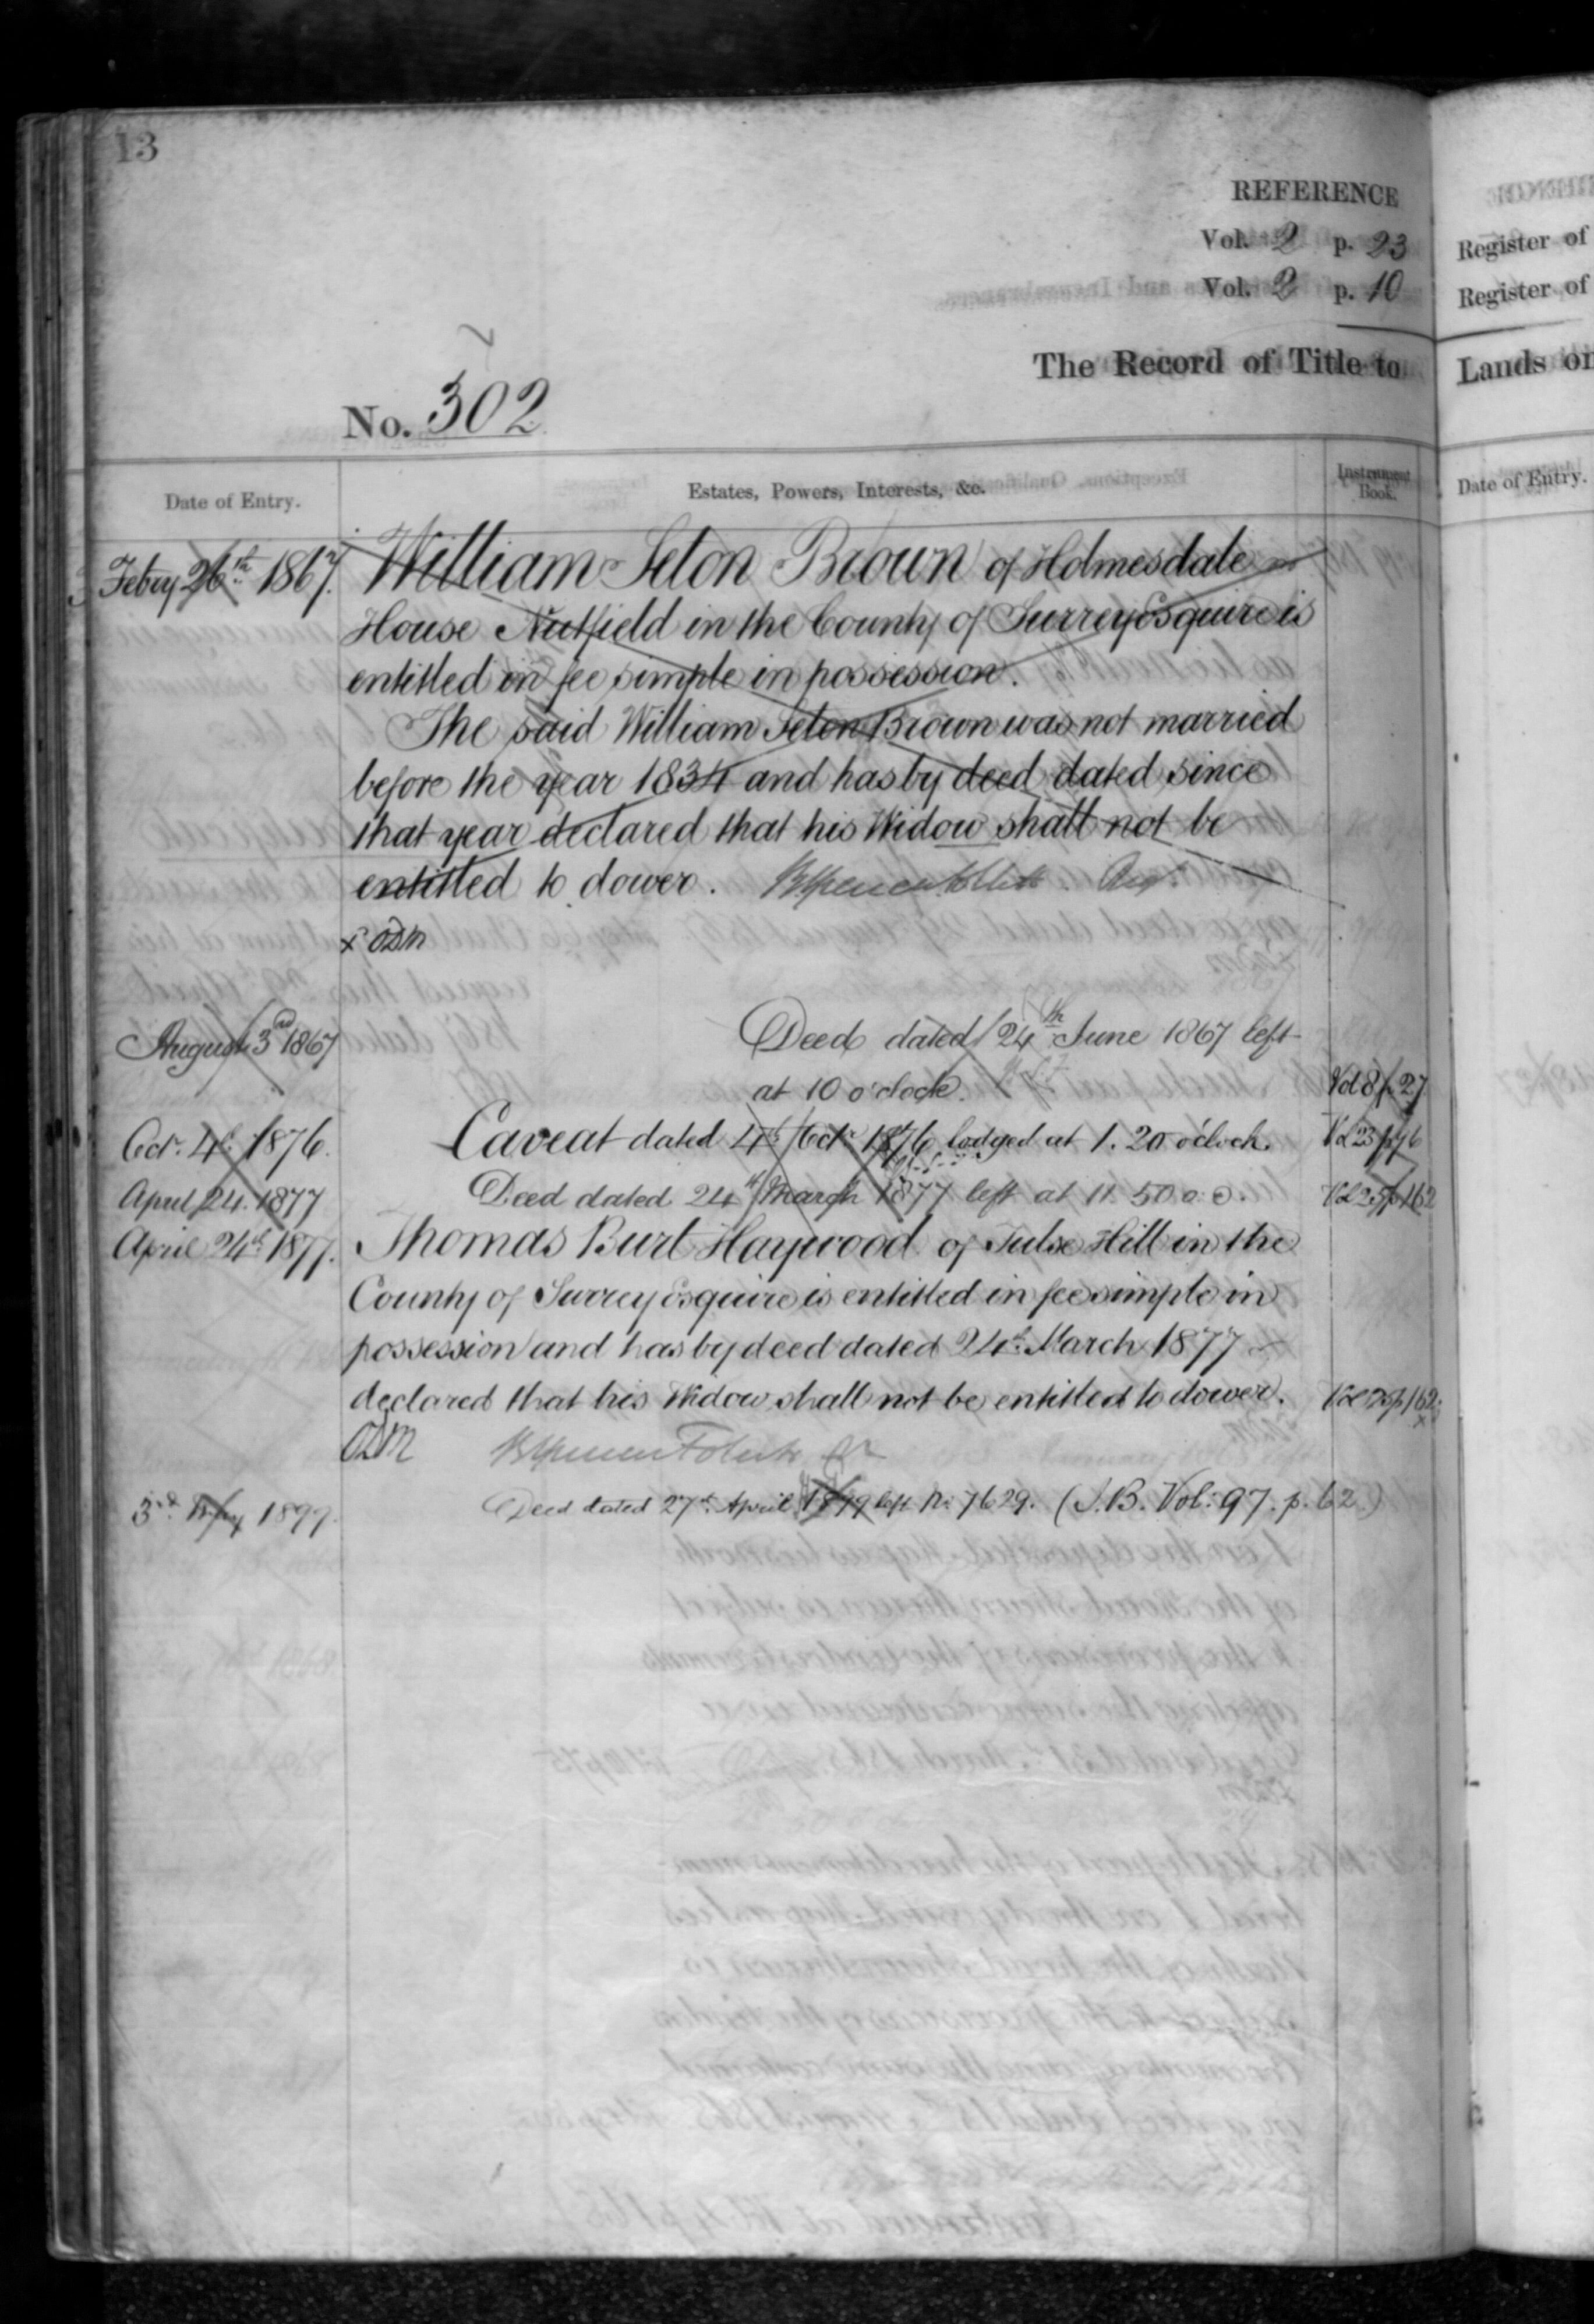 13
REFERENCE
Vol. 2 p. 23
Vol. 2 p. 10
The Record of Title to
No. 302
Date of Entry.
Estates, Powers, Interests, &c.
Instrument Book.
Febry 26th 1867.
William Seton Brown of Holmesdale
House Nutfield in the County of Surrey Esquire is
entitled in fee simple in possession.
The said William Seton Brown was not married
before the year 1834 and has by deed dated since
that year declared that his Widow shall not be
entitled to dower.
August 3rd 1867
Deed dated 24th June 1867 left
at 10 o'clock.
Vol 8 p 27
Octr. 4th 1876.
Caveat dated 4th Octr 1876 lodged at 1.20 o'clock.
Vol 23 p 76
April 24. 1877
Deed dated 24th March 1877 left at 11.50 o.c.
Vol 25 p 162
April 24th 1877.
Thomas Burt Haywood of Tulse Hill in the
County of Surrey Esquire is entitled in fee simple in
possession and has by deed dated 24th March 1877
declared that his Widow shall not be entitled to dower.
Vol 25 p 162
3rd May 1899.
Deed dated 27th April 1899 left No. 7629. (I.B. Vol: 97. p. 62.)
Register of
Register of
Lands or
Date of Entry.